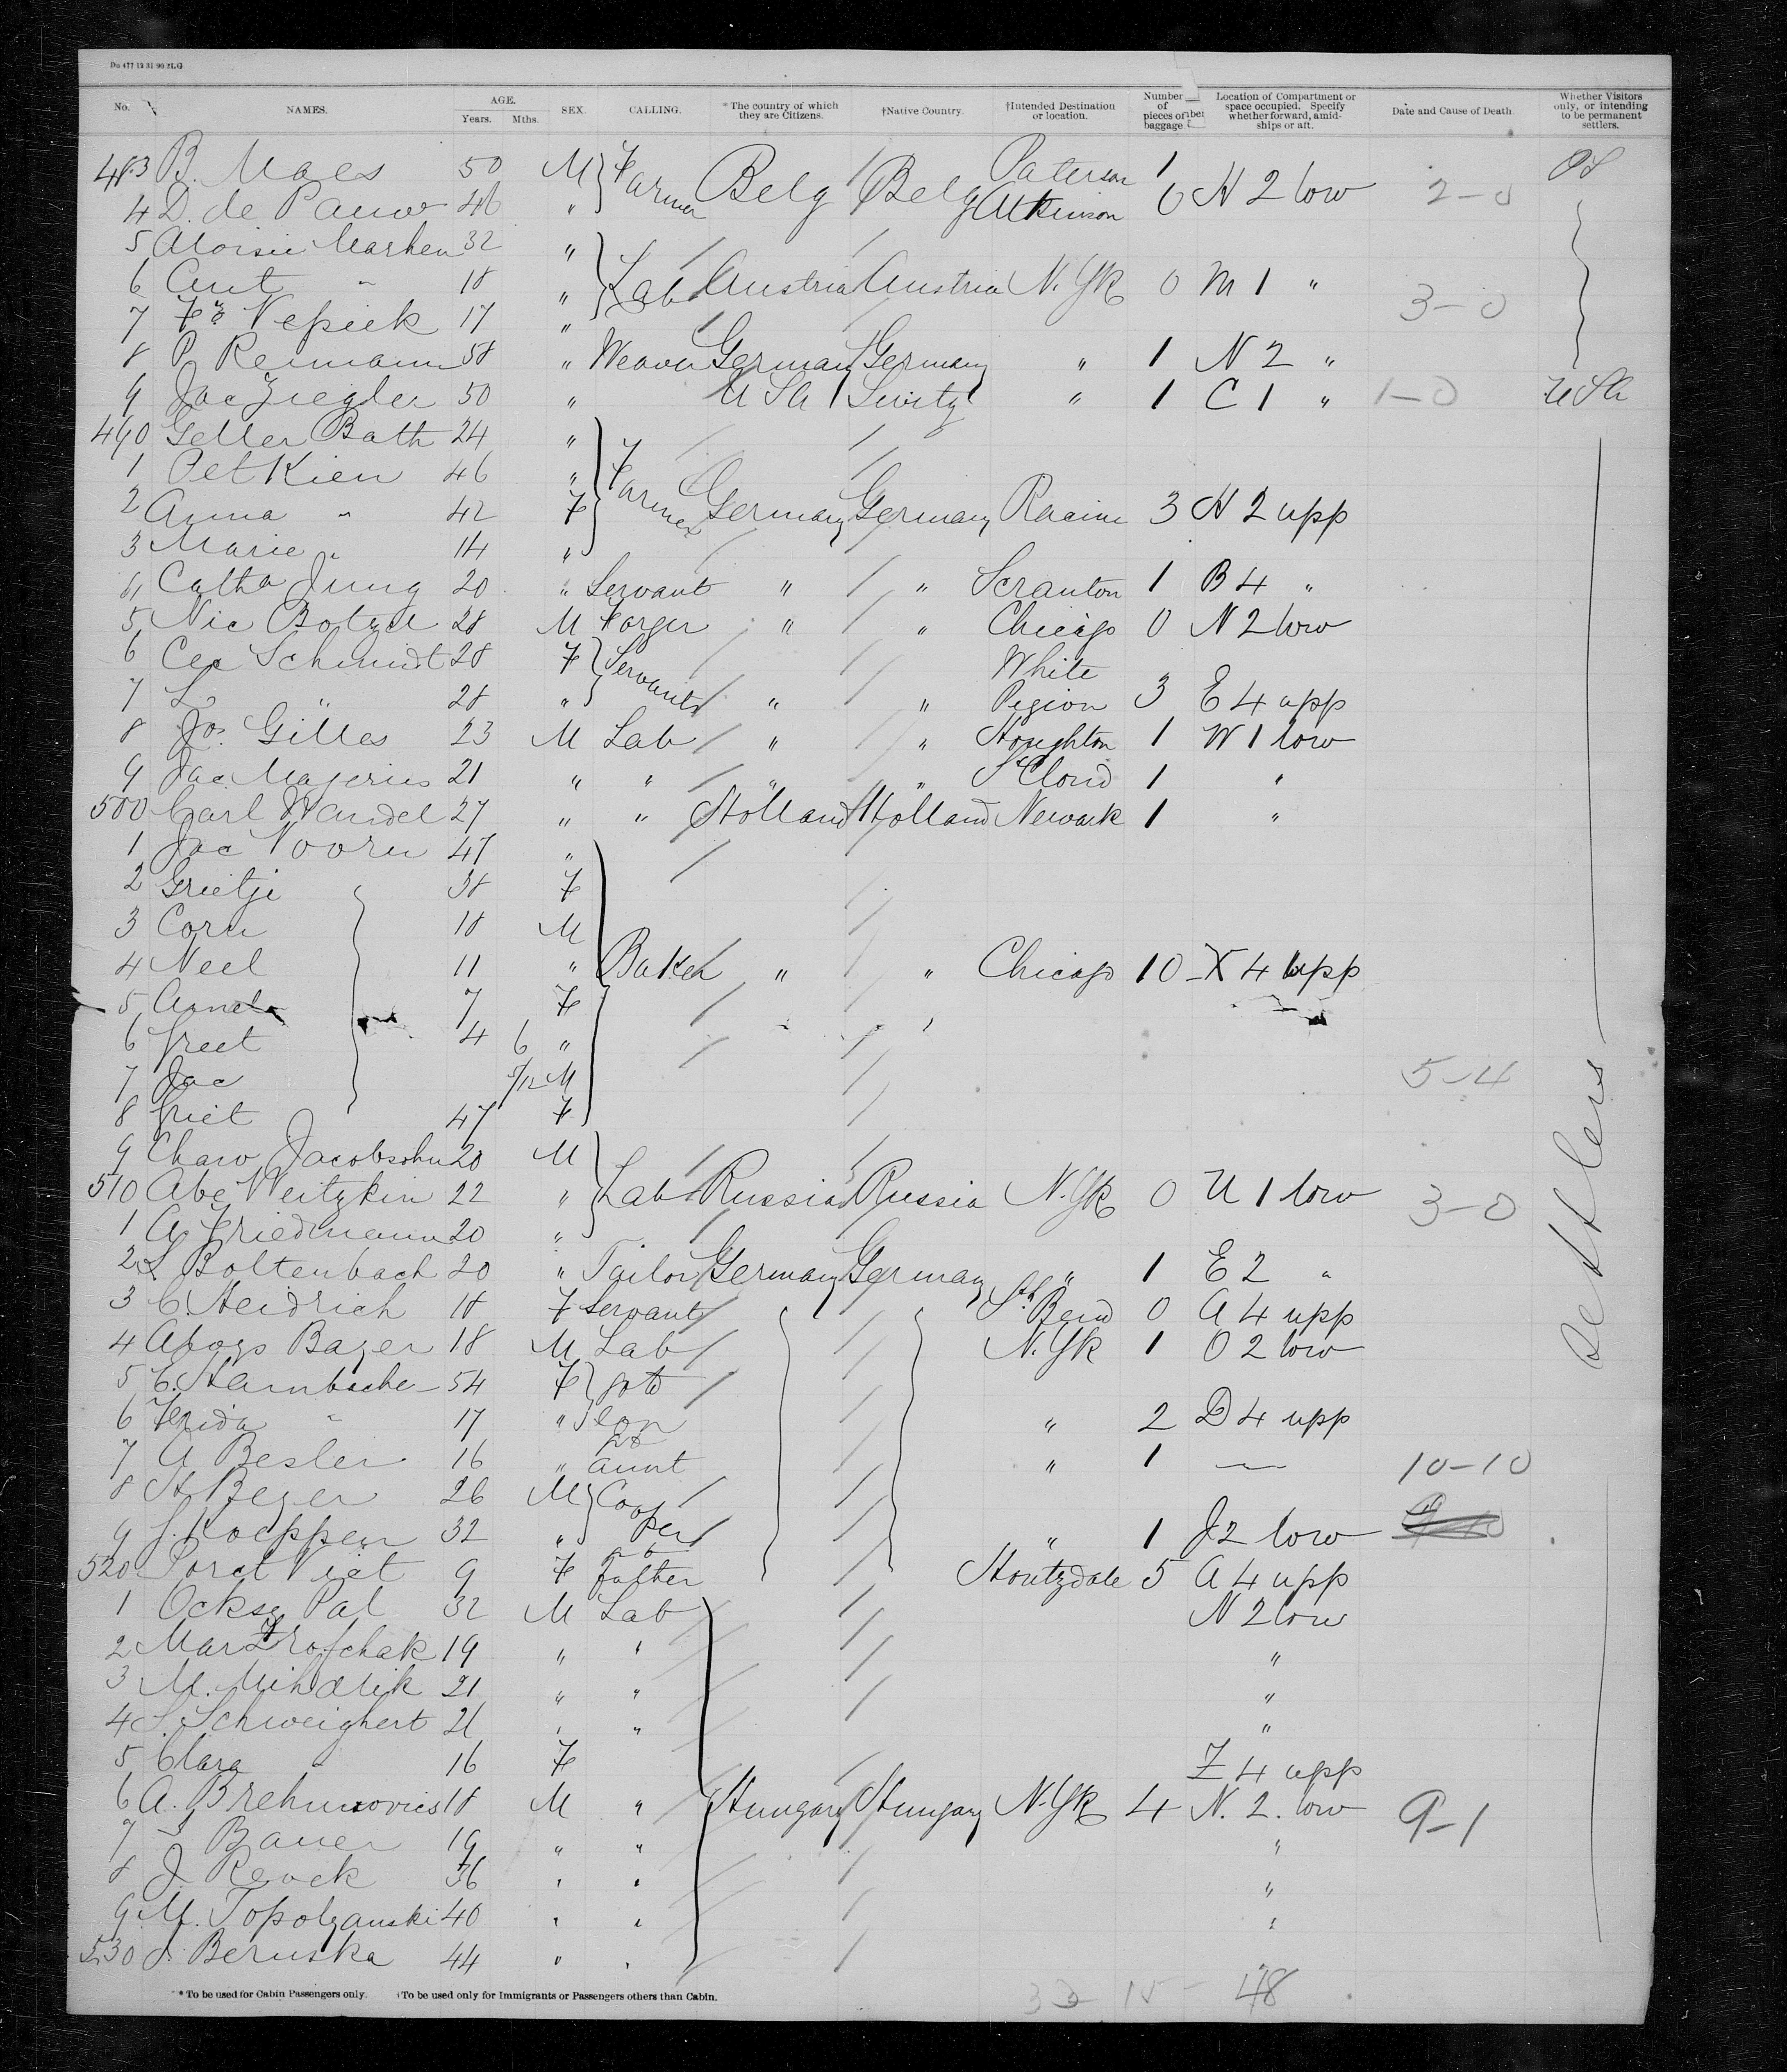 Do 477 12 31 90 2LG
No. NAMES. AGE. Years. Mths. SEX. CALLING. *The country of which they are Citizens. †Native Country. †Intended Destination or location. Number of pieces of baggage. Location of Compartment or space occupied. Specify whether forward, amidships or aft. Date and Cause of Death. Whether Visitors only, or intending to be permanent settlers.
483 B. Maes 50 M Farmer Belg Belg Paterson 1
4 D. de Pauw 46 " Atkinson 0 H 2 low 2-0
5 Aloisie Marhen 32 "
6 Ant " 18 " Lab Austria Austria N. Yk 0 M 1 " 3-0
7 Fz Nepiek 17 "
8 P Reimann 58 " Weaver Germany Germany " 1 N 2 "
9 Jac Ziegler 50 " U Sa Switz " 1 C 1 " 1-0 U Sa
490 Geller Bath 24 "
1 Pet Kien 46 " Farmer
2 Anna " 42 F Germany Germany Racine 3 H 2 upp
3 Marie " 14 "
4 Catha Jung 20 " Servant " " Scranton 1 B 4 "
5 Nic Botzet 28 M Forger " " Chicago 0 N 2 low
6 Cec Schmidt 28 F Servants White
7 L " 28 " " " Pegion 3 E 4 upp
8 Jos. Gilles 23 M Lab " " Houghton 1 W 1 low
9 Jac. Majerus 21 " " " " St Cloud 1 "
500 Carl Wandel 27 " " Holland Holland Newark 1 "
1 Jac Voorn 47 "
2 Grietje 38 F
3 Corn 18 M
4 Neel 11 " Baker " " Chicago 10 X 4 upp
5 7 F
6 Greet 4 6 "
7 Jac 5/12 M 5-4
8 Griet 47 F
settlers
9 Chaw Jacobsohn 20 M
510 Abe Weitzkin 22 " Lab Russia Russia N. Yk 0 U 1 low 3-0
1 A Friedmann 20 "
2 L Boltenbach 20 " Tailor Germany Germany " 1 E 2 "
3 C. Heidrich 18 F Servant Sth Bend 0 A 4 upp
4 Bazer 18 M Lab N. Yk 1 O 2 low
5 C. Hambache 54 F go to
6 Frida " 17 " son " 2 D 4 upp
7 A Besler 16 " to aunt " 1 — 10-10
8 H Bezer 26 M Cooper
9 J. Koeppen 32 " " 1 J 2 low
520 9 F father Houtzdale 5 A 4 upp
1 Ocksz Pal 32 M Lab N 2 low
2 Mar Trofchak 19 " " "
3 M. Mihalik 21 " " "
4 S. Schweighert 21 " " "
5 Clara 16 F Z 4 upp
6 A. Brehmovics 18 M " Hungary Hungary N. Yk 4 N. 2. low 9-1
7 J Bauer 19 " " "
8 J. Renck 36 " " "
9 M. Topolyanski 40 " " "
530 J. Beruska 44 " "
*To be used for Cabin Passengers only. †To be used only for Immigrants or Passengers others than Cabin.
33 15 48